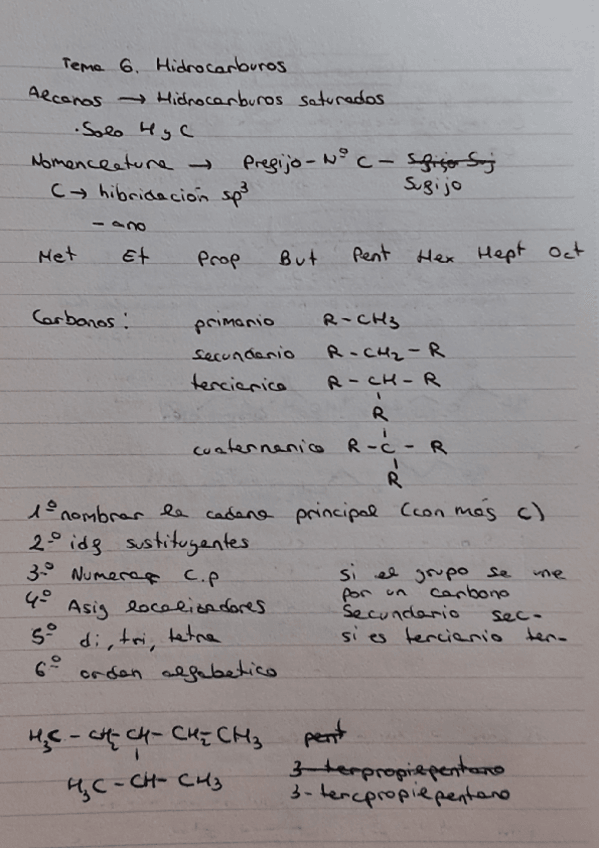 Tema 6. Hidrocarburos
Alcanos → Hidrocarburos saturados
· Solo H y C
Nomenclatura → Prefijo - Nº C - Sufijo Suj
Sufijo
C → hibridación sp³
- ano
Met Et Prop But Pent Hex Hept Oct
Carbonos: primario R-CH3
secundario R-CH2-R
terciario R-CH-R
R
cuaternario R-C-R
R
1º nombrar la cadena principal (con más C)
2º idf sustituyentes
3º Numerar C.p si el grupo se une
4º Asig localizadores por un carbono
Secundario sec-
5º di, tri, tetra si es terciario ter-
6º orden alfabetico
H3C - CH2 - CH - CH2 - CH3 pent
H3C - CH - CH3 3-terpropilpentano
3-tercpropilpentano